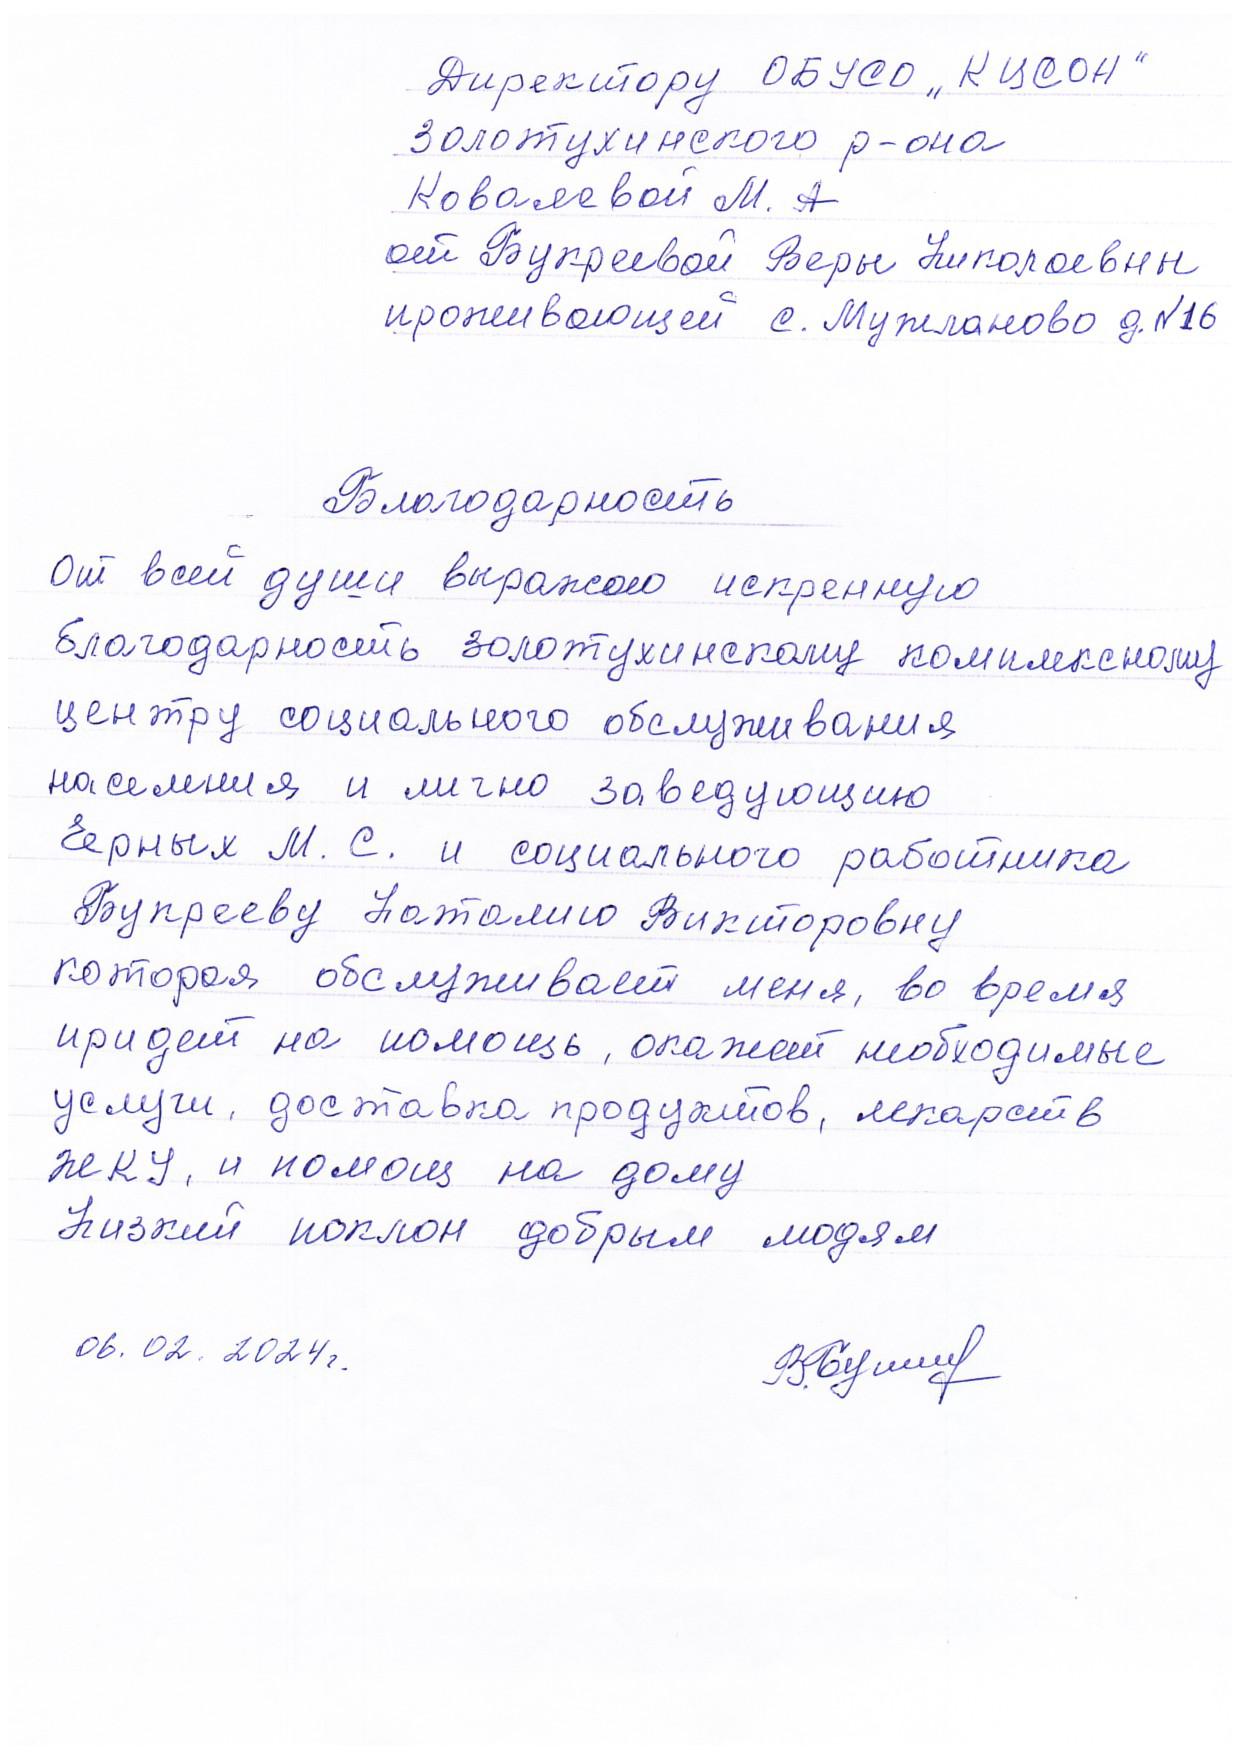 Директору ОБУСО „КЦСОН“
Золотухинского р-она
Ковалевой М. А
от Букреевой Веры Николаевны
проживающей с. Мужланово д. №16
Благодарность
От всей души выражаю искренную
благодарность Золотухинскому комплексному
центру социального обслуживания
населения и лично заведующию
Черных М. С. и социального работника
Букрееву Наталию Викторовну
которая обслуживает меня, во время
придет на помощь, окажет необходимые
услуги, доставка продуктов, лекарств
ЖКУ, и помощ на дому
Низкий поклон добрым людям
06.02.2024г.